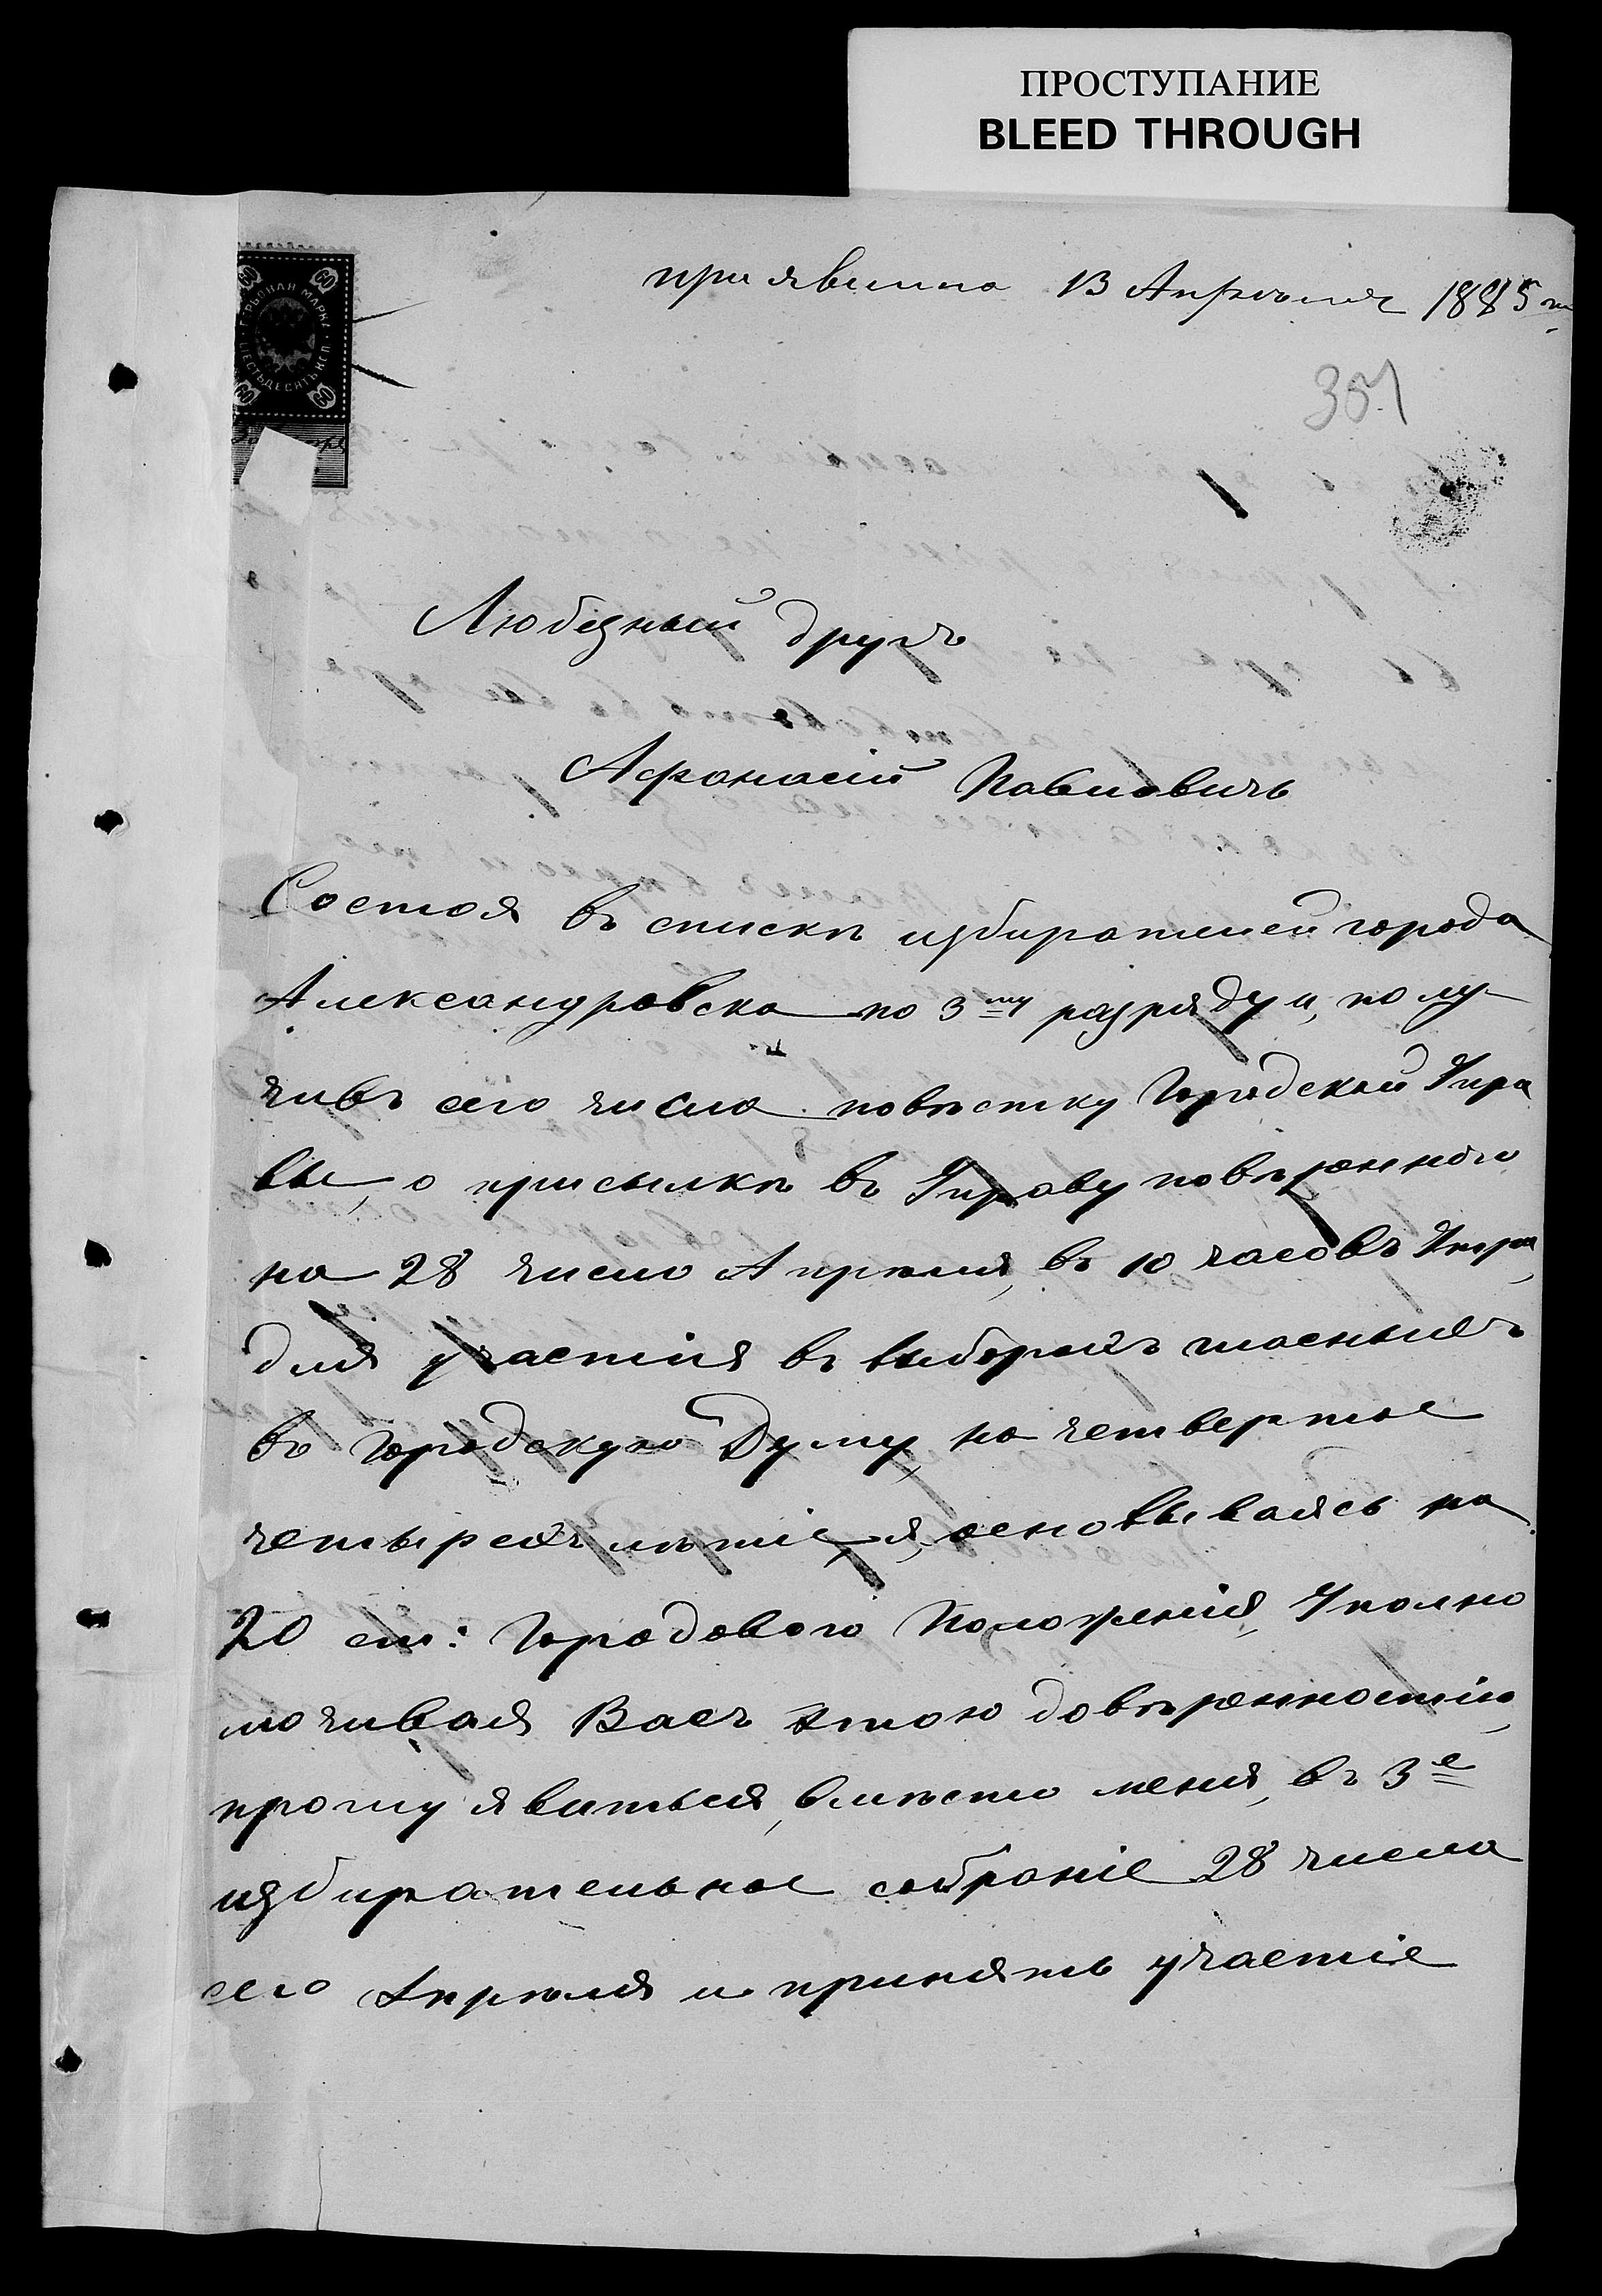 ПРОСТУПАНИЕ
BLEED THROUGH
приявлена 13 Апрѣля 1885 г.
ГЕРБОВАЯ МАРКА
ШЕСТЬДЕСЯТЬ КОП.
60 60
60 60
Любезный другъ
Афанасій Павловичъ
Состоя въ спискѣ избирателей города
Александровска по 3му разряду и, полу-
чивъ сего числа повѣстку Городской Упра
вы, о присылкѣ въ Управу повѣренного
на 28 число Апрѣля, въ 10 часовъ Утра,
для участія въ выборахъ гласныхъ
въ Городскую Думу, на четвертое
четырехлѣтіе, я, основываясь на
20 ст: Городового Положенія, Уполно
мочивая Васъ этою довѣренностію,
прошу явиться, вмѣсто меня, въ 3е
избирательное собраніе 28 числа
сего Апрѣля и принять участіе